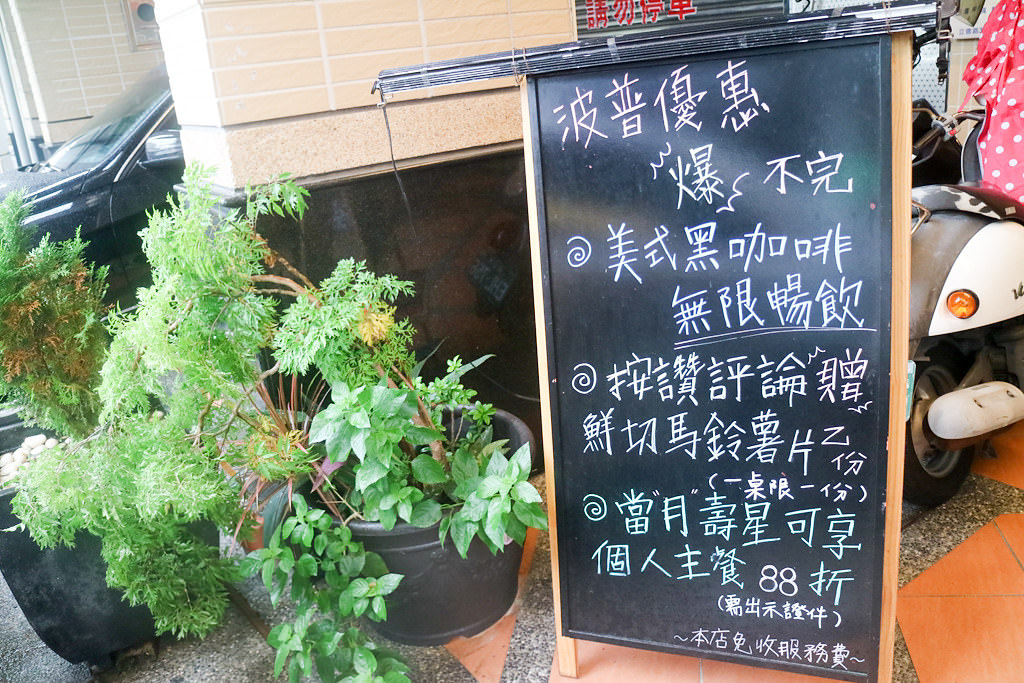 請勿停車
波普優惠
爆 不完
美式黑咖啡
無限暢飲
按讚評論"贈"
鮮切馬鈴薯片乙份
(一桌限一份)
當"月"壽星可享
個人主餐 88 折
(需出示證件)
~本店免收服務費~